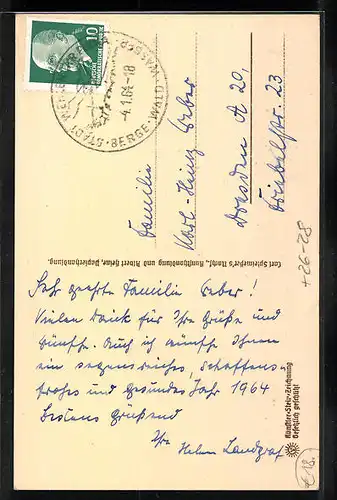 10
DEUTSCHE DEMOKRATISCHE REPUBLIK
STADT WEHLEN · BERGE · WALD · WASSER
-4.1.64-18
Familie
Karl-Heinz Weber
Dresden A 20,
23
+26-28
Curt Spreinwerker's Nachf., Kunsthandlung und Albert Heine, Papierhandlung.
Sehr geehrte Familie Weber!
Vielen Dank für Ihre Grüße und
Wünsche. Auch ich wünsche Ihnen
ein segensreiches, schaffens-
frohes und gesundes Jahr 1964
Bestens grüßend
Ihr
Helm Landgraf
Künstler-Stein-Zeichnung
Gesetzlich geschützt
€ 18.